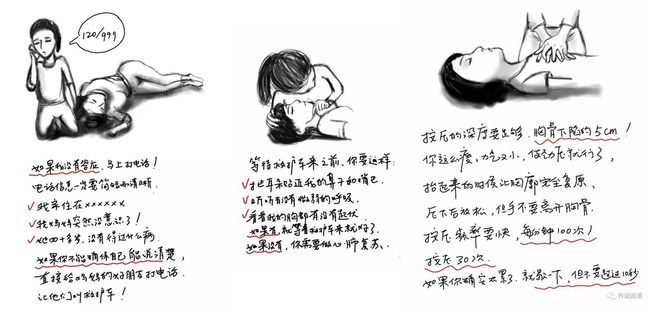 120/999
如果我没有答应,马上打电话!
电话信息一定要你姐加清晰.
✓我家住在××××××
✓我妈妈突然没意识了!
✓她四十多岁,没有得过什么病.
如果你不能确保自己能说清楚,
直接给妈妈的好朋友打电话
让他们叫救护车!
等待救护车来之前,你要这样:
✓把耳朵贴近我的鼻子和嘴巴
✓听听有没有微弱的呼吸
✓看看我的胸部有没有起伏
如果有,就等着救护车来就好了.
如果没有,你需要做心肺复苏.
按压的深度要足够,胸骨下陷约5cm!
你这么瘦,力气又小,使劲压就行了,
抬起来的时候让胸廓完全复原、
压下后放松,但手不要离开胸骨.
按压频率要快,每分钟100次!
按压30次.
如果你确实太累了,就歇一下,但不要超过10秒.